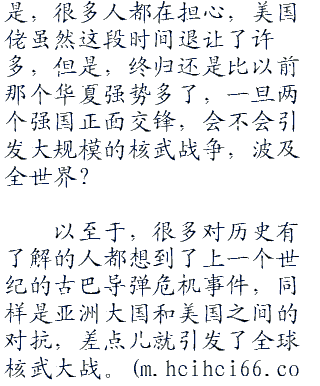 是，很多人都在担心，美国
佬虽然这段时间退让了许
多，但是，终归还是比以前
那个华夏强势多了，一旦两
个强国正面交锋，会不会引
发大规模的核武战争，波及
全世界？
以至于，很多对历史有
了解的人都想到了上一个世
纪的古巴导弹危机事件，同
样是亚洲大国和美国之间的
对抗，差点儿就引发了全球
核武大战。(m.hcihci66.co